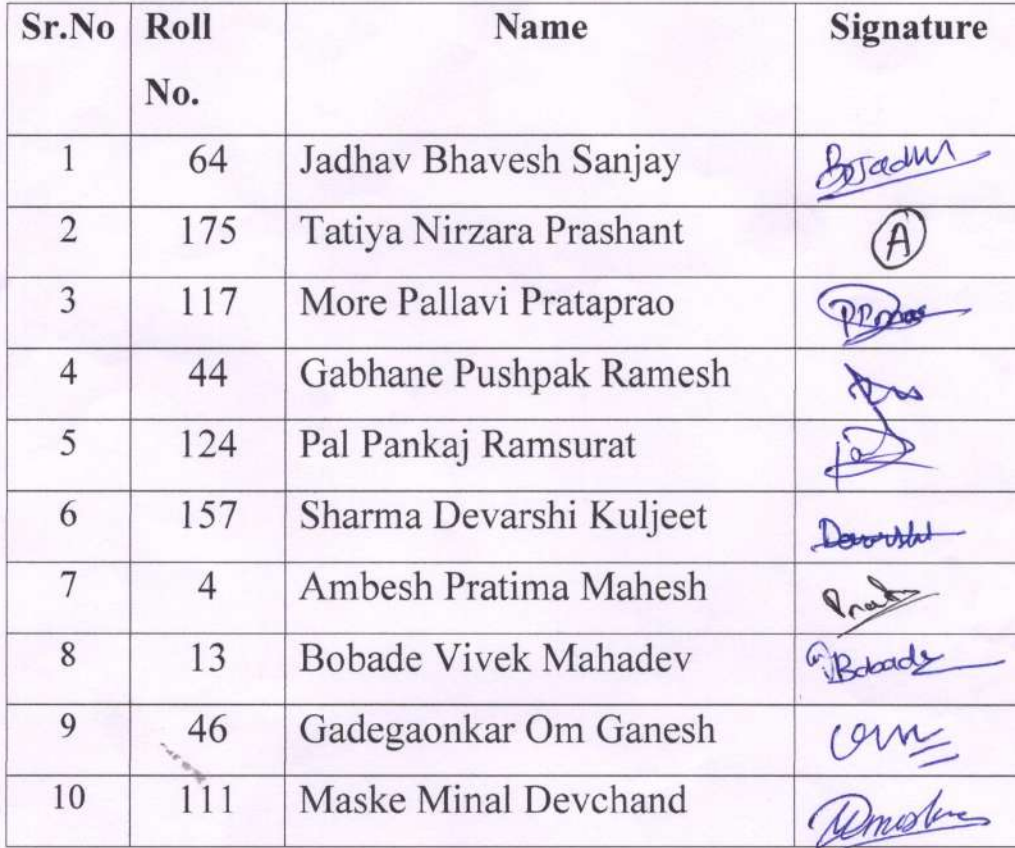 Sr.No Roll No. Name Signature
1 64 Jadhav Bhavesh Sanjay BSJadhav
2 175 Tatiya Nirzara Prashant A
3 117 More Pallavi Prataprao
4 44 Gabhane Pushpak Ramesh
5 124 Pal Pankaj Ramsurat
6 157 Sharma Devarshi Kuljeet Devarshi
7 4 Ambesh Pratima Mahesh
8 13 Bobade Vivek Mahadev Bobade
9 46 Gadegaonkar Om Ganesh Om
10 111 Maske Minal Devchand